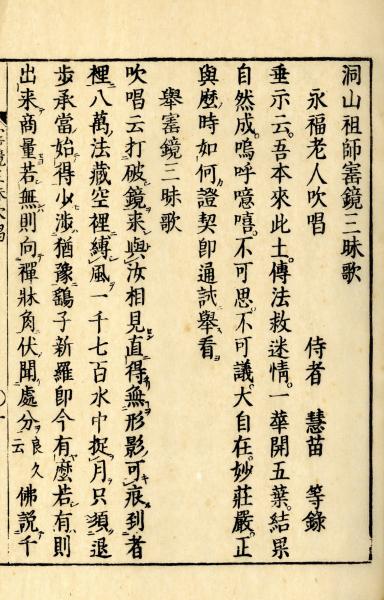 洞山祖師寚鏡三昧歌
永福老人吹唱　侍者　慧苗　等錄
垂示云。吾本來此土。傳法救迷情。一華開五葉。結果
自然成。嗚呼噫嘻。不可思。不可議。大自在。妙莊嚴。正
與麼時如何證契卽通試舉看。
舉寚鏡三昧歌
吹唱云打破鏡来與汝相見直得無形影可痕到者
裡八萬法藏空裡縛風一千七百水中捉月只須退
步承當始得少涉猶豫鷂子新羅卽今有麼若有則
出来商量若無則向禪牀角伏聞處分良久云　佛説千